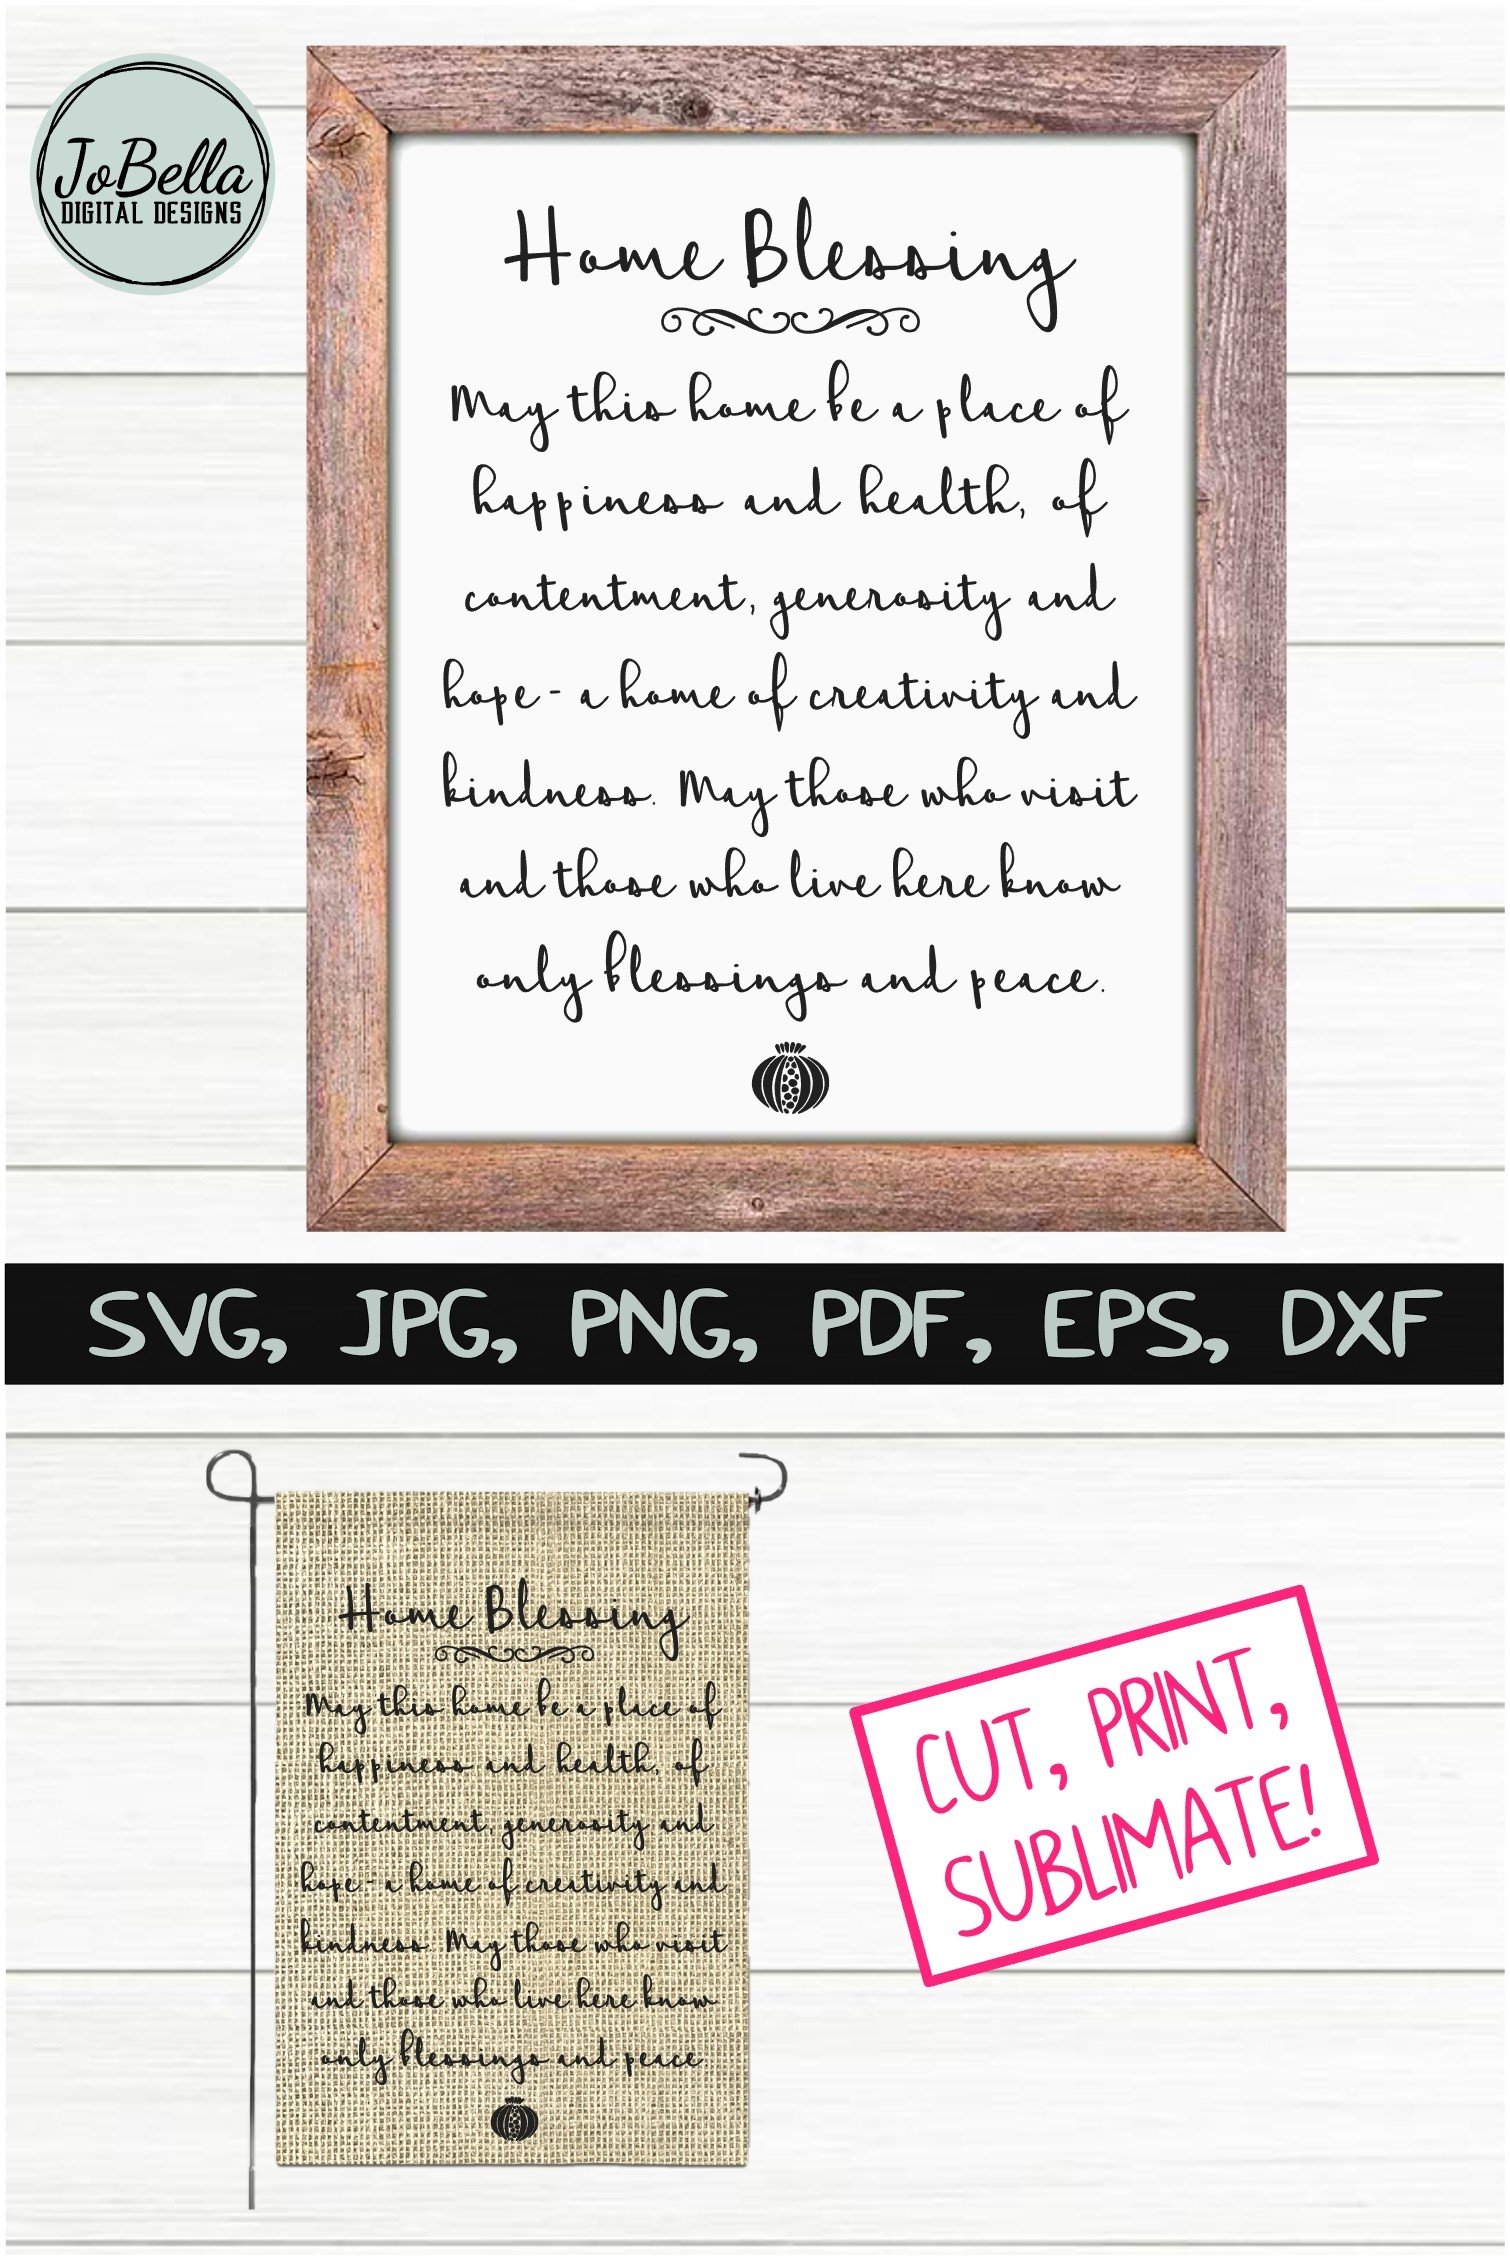 JoBella
DIGITAL DESIGNS
Home Blessing
May this home be a place of
happiness and health, of
contentment, generosity and
hope - a home of creativity and
kindness. May those who visit
and those who live here know
only blessings and peace.
SVG, JPG, PNG, PDF, EPS, DXF
Home Blessing
May this home be a place of
happiness and health, of
contentment, generosity and
hope - a home of creativity and
kindness. May those who visit
and those who live here know
only blessings and peace
CUT, PRINT,
SUBLIMATE!